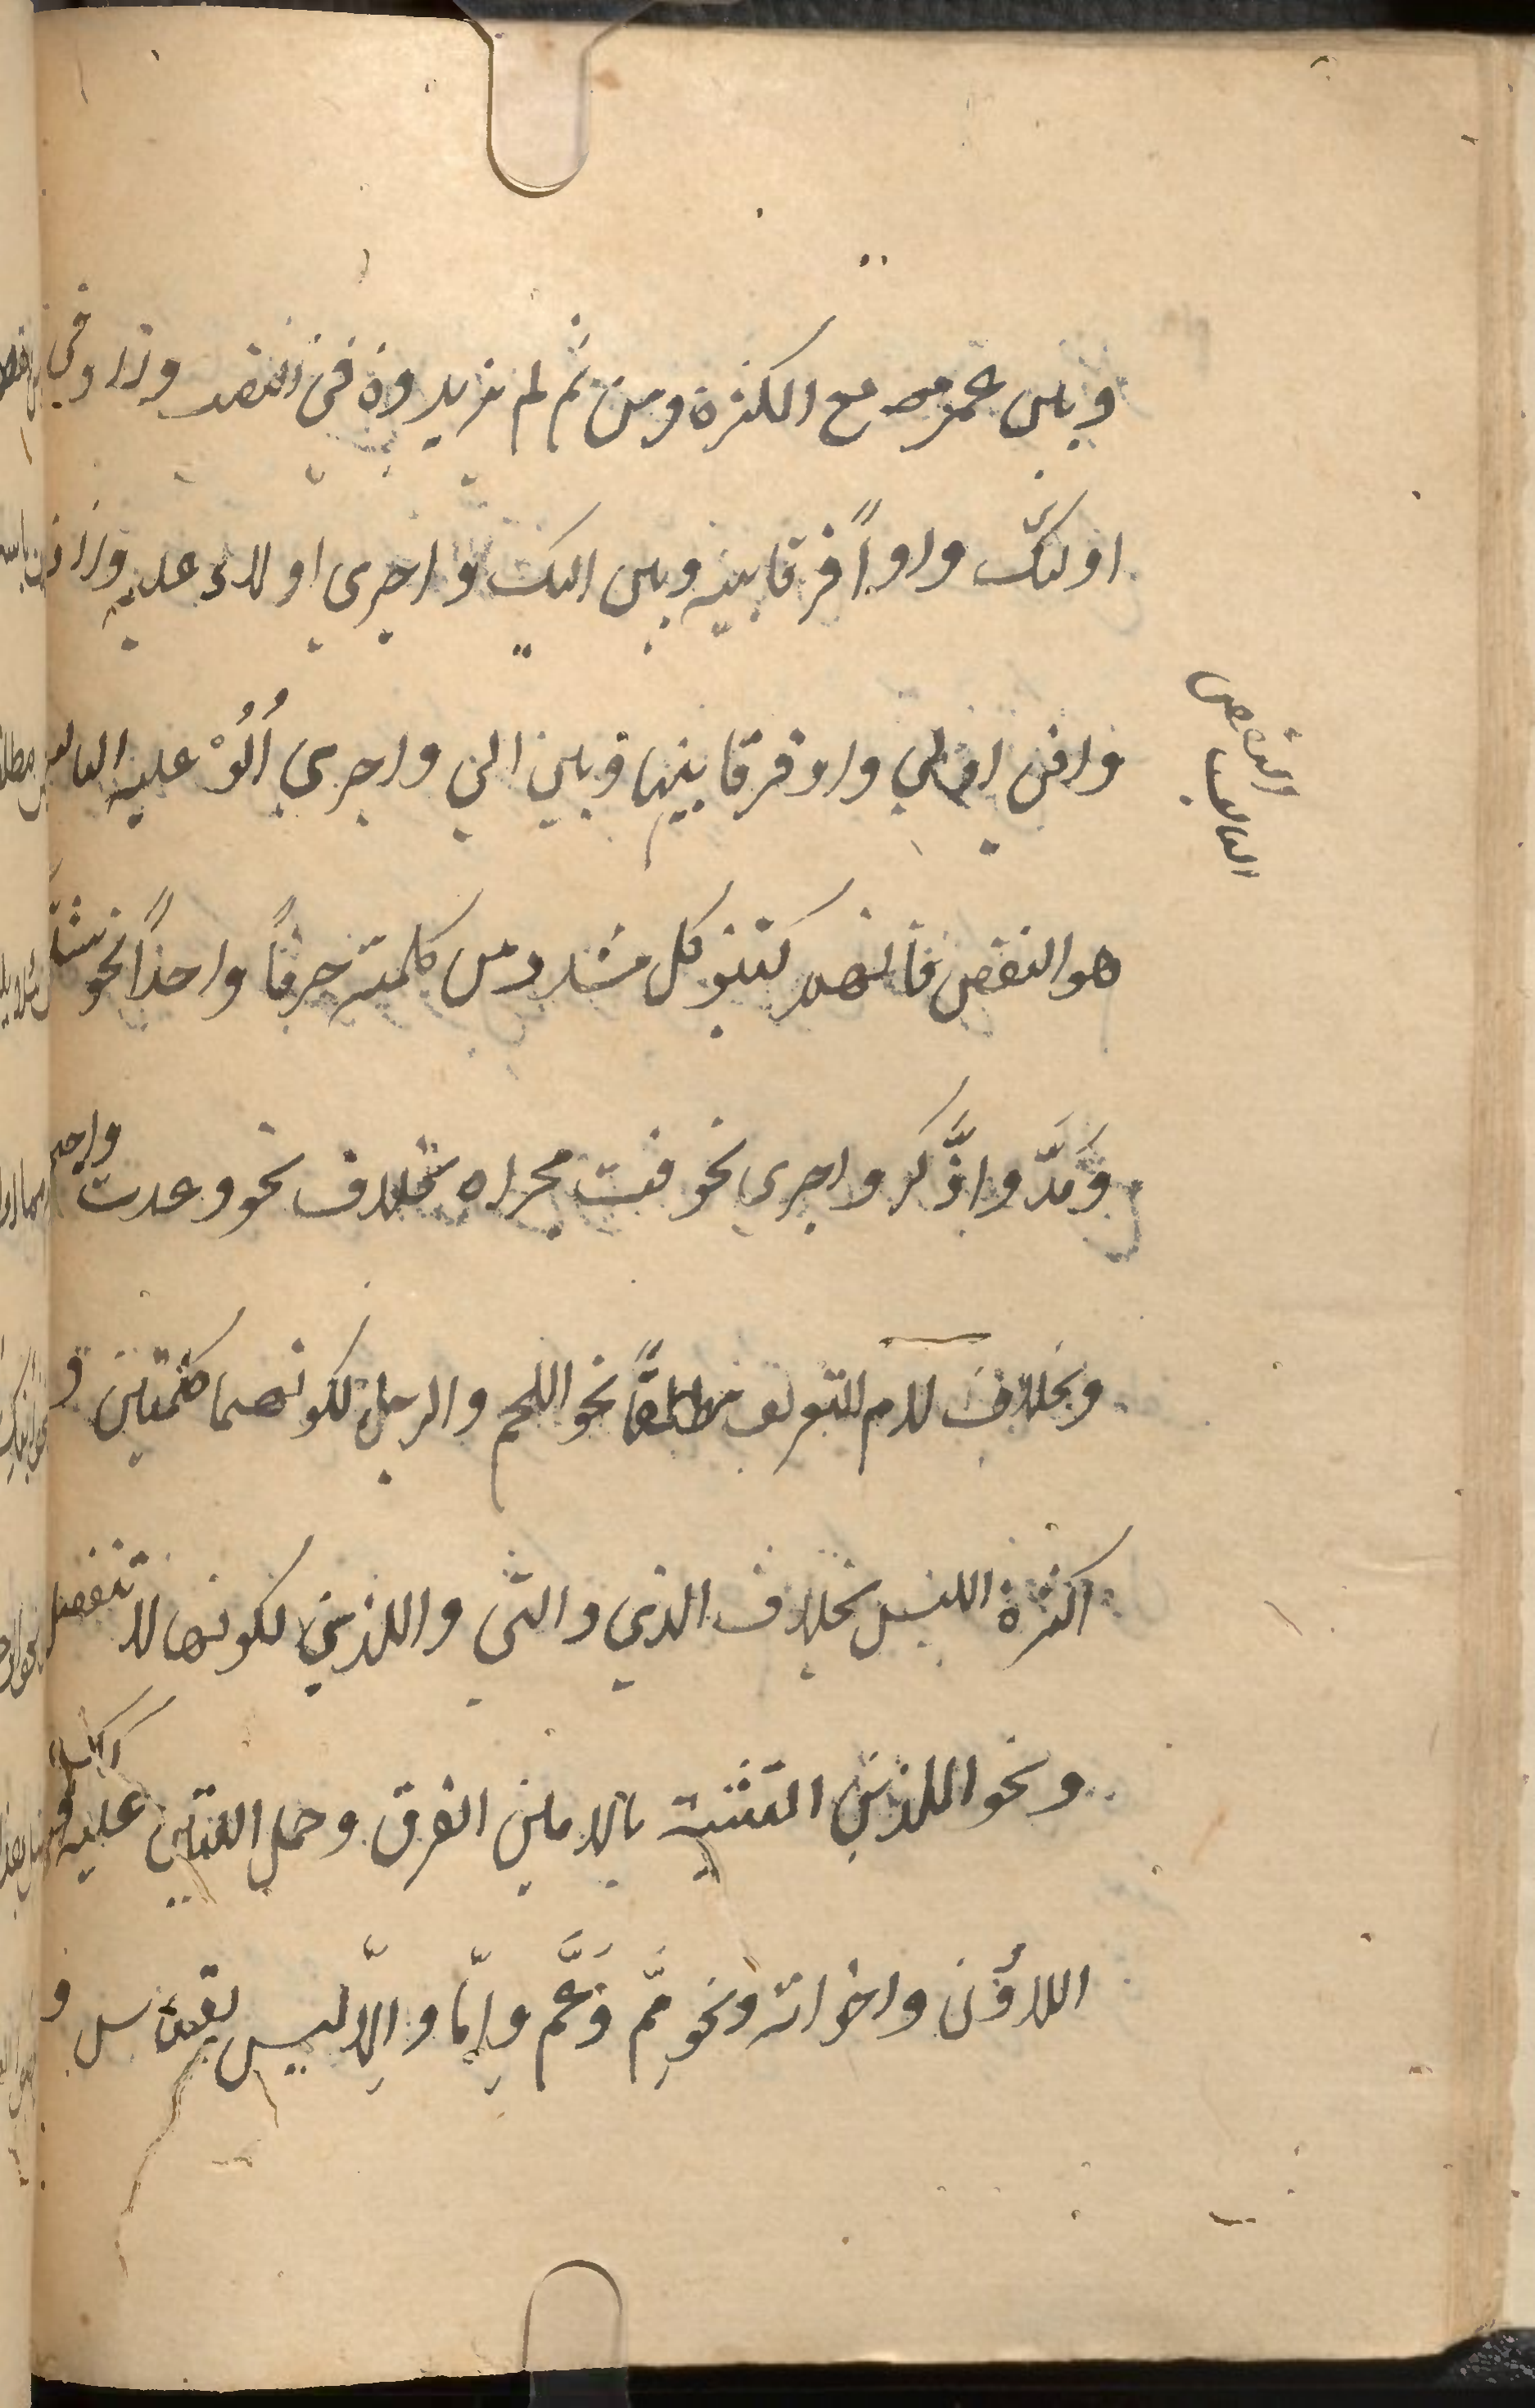 وبين عمر مع الكثرة ومن ثم لم يزيدوه في النصب وزادوا في
اولئك واواً فرقا بينه وبين اليك واجري اولاء عليه وزادوا
وافي اولي واو فرقا بينها وبين الي واجري اُلُوْ عليه الثالث
هو النقص فانهم كتبو كل مشدد من كلمته حرفاً واحداً نحو شدّ
وَمَدّ واذَّكر واجري نحو فتت مجراه بخلاف نحو وعدت واجبهه
وبخلاف لام التعريف مطلقاً نحو اللحم والرجل لكونهما كلمتين و
اكثرة اللبس بخلاف الذي والتي واللذين لكونها لا تنفصل
ونحو اللذين التثنية بلامين الفرق وحمل اللتين عليه وكذا
اللاؤن واخواته ونحو مِمَّ وَعَمَّ وإمّا وإلا ليس بقياس و
النقص
الثالث